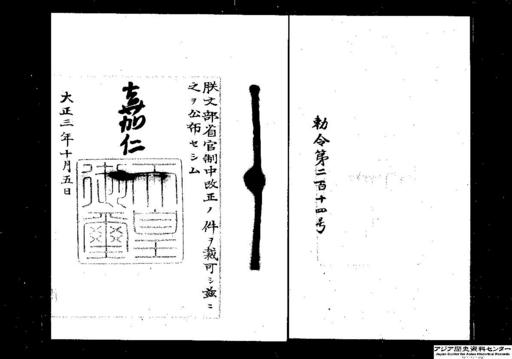 勅令第二百十四号
朕文部省官制中改正ノ件ヲ裁可シ茲ニ
之ヲ公布セシム
嘉仁
天皇
御璽
大正三年十月五日
アジア歴史資料センター
Japan Center for Asian Historical Records